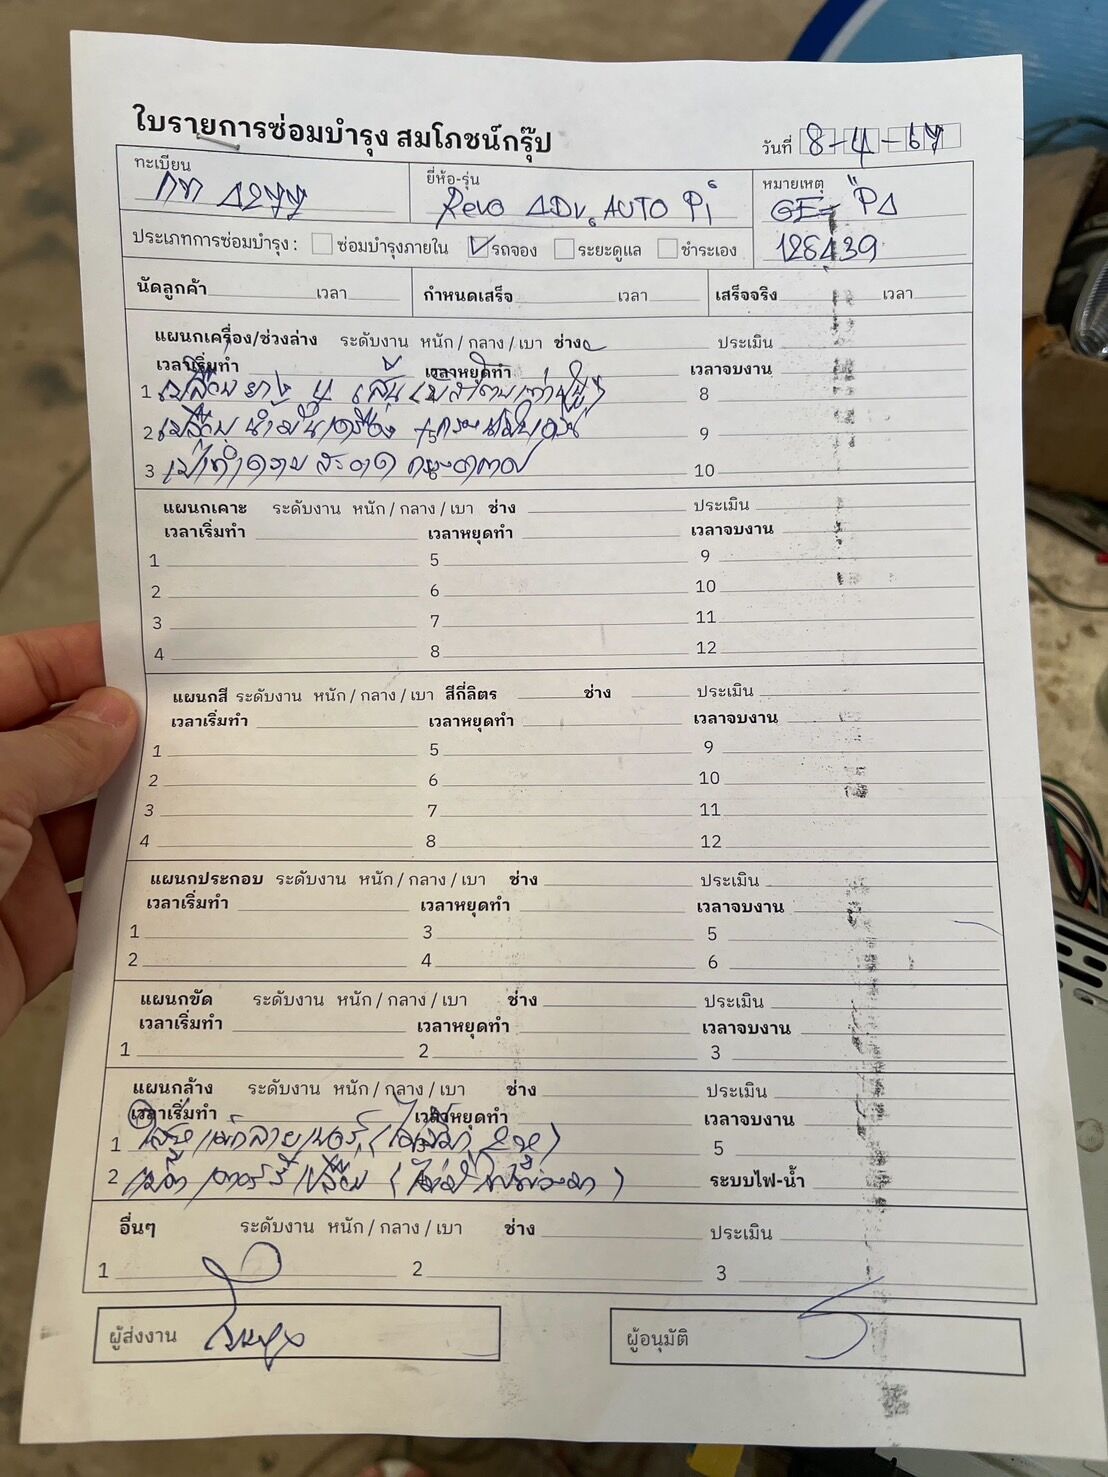 ใบรายการซ่อมบำรุง สมโภชน์กรุ๊ป
วันที่ 8-4-67
ทะเบียน
ยี่ห้อ-รุ่น Revo ADV. AUTO
หมายเหตุ
126439
ประเภทการซ่อมบำรุง : ซ่อมบำรุงภายใน รถจอง ระยะดูแล ชำระเอง
นัดลูกค้า เวลา กำหนดเสร็จ เวลา เสร็จจริง เวลา
แผนกเครื่อง/ช่วงล่าง ระดับงาน หนัก / กลาง / เบา ช่าง ประเมิน
เวลาเริ่มทำ เวลาหยุดทำ เวลาจบงาน
1 เปลี่ยนยาง 4 เส้น 8
2 เปลี่ยนน้ำมันเครื่อง 9
3 10
แผนกเคาะ ระดับงาน หนัก / กลาง / เบา ช่าง ประเมิน
เวลาเริ่มทำ เวลาหยุดทำ เวลาจบงาน
1 5 9
2 6 10
3 7 11
4 8 12
แผนกสี ระดับงาน หนัก / กลาง / เบา สีกี่ลิตร ช่าง ประเมิน
เวลาเริ่มทำ เวลาหยุดทำ เวลาจบงาน
1 5 9
2 6 10
3 7 11
4 8 12
แผนกประกอบ ระดับงาน หนัก / กลาง / เบา ช่าง ประเมิน
เวลาเริ่มทำ เวลาหยุดทำ เวลาจบงาน
1 3 5
2 4 6
แผนกขัด ระดับงาน หนัก / กลาง / เบา ช่าง ประเมิน
เวลาเริ่มทำ เวลาหยุดทำ เวลาจบงาน
1 2 3
แผนกล้าง ระดับงาน หนัก / กลาง / เบา ช่าง ประเมิน
เวลาเริ่มทำ เวลาหยุดทำ เวลาจบงาน
1 5
2 ระบบไฟ-น้ำ
อื่นๆ ระดับงาน หนัก / กลาง / เบา ช่าง ประเมิน
1 2 3
ผู้ส่งงาน
ผู้อนุมัติ